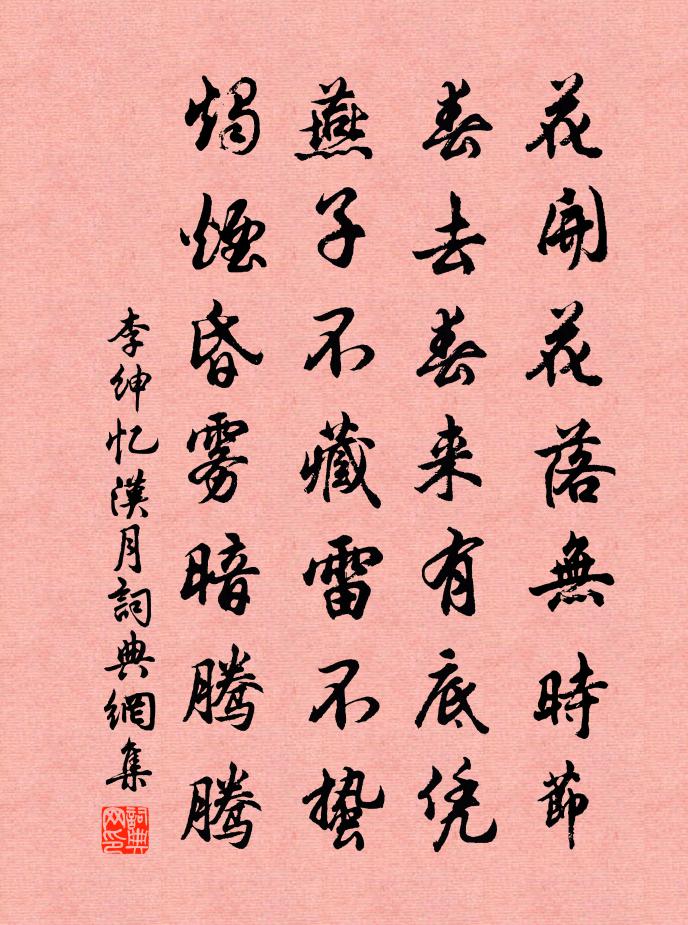 花開花落無時節
春去春来有底凭
燕子不藏雷不蛰
燭煙昏雾暗騰騰
李绅忆漢月詞典網集
詞典网印